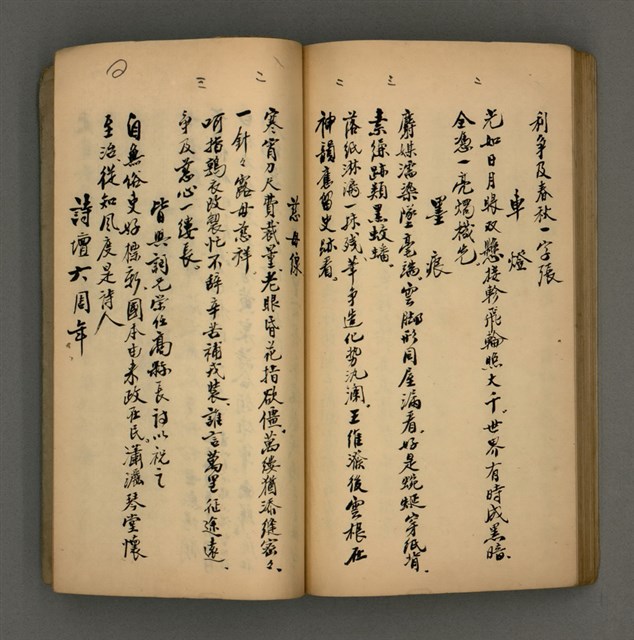 利爭及春秋一字張
車燈
光如日月眼双懸接軫飛輪照大千世界有時成黑暗
全憑一亮燭機先
墨痕
麝媒濡染墜毫端雲脚形同屋漏看好是蜿蜒穿紙背
素絲跡類黑蛟蟠
落紙淋漓一抹殘筆爭造化勢汎瀾王維潑後雲根在
神韻應留史跡看
慈母線
寒宵刀尺費裁量老眼昏花指欲僵萬縷猶添縫密々
一針々露母慈祥
呵指鶉衣改製忙不辭辛苦補戎裝誰言萬里征途遠
爭及慈心一縷長
皆興詞兄榮任高縣長詩以祝之
自無俗吏好標新國本由來政在民瀟灑琴堂懷
至治從知風度是詩人
詩壇六周年